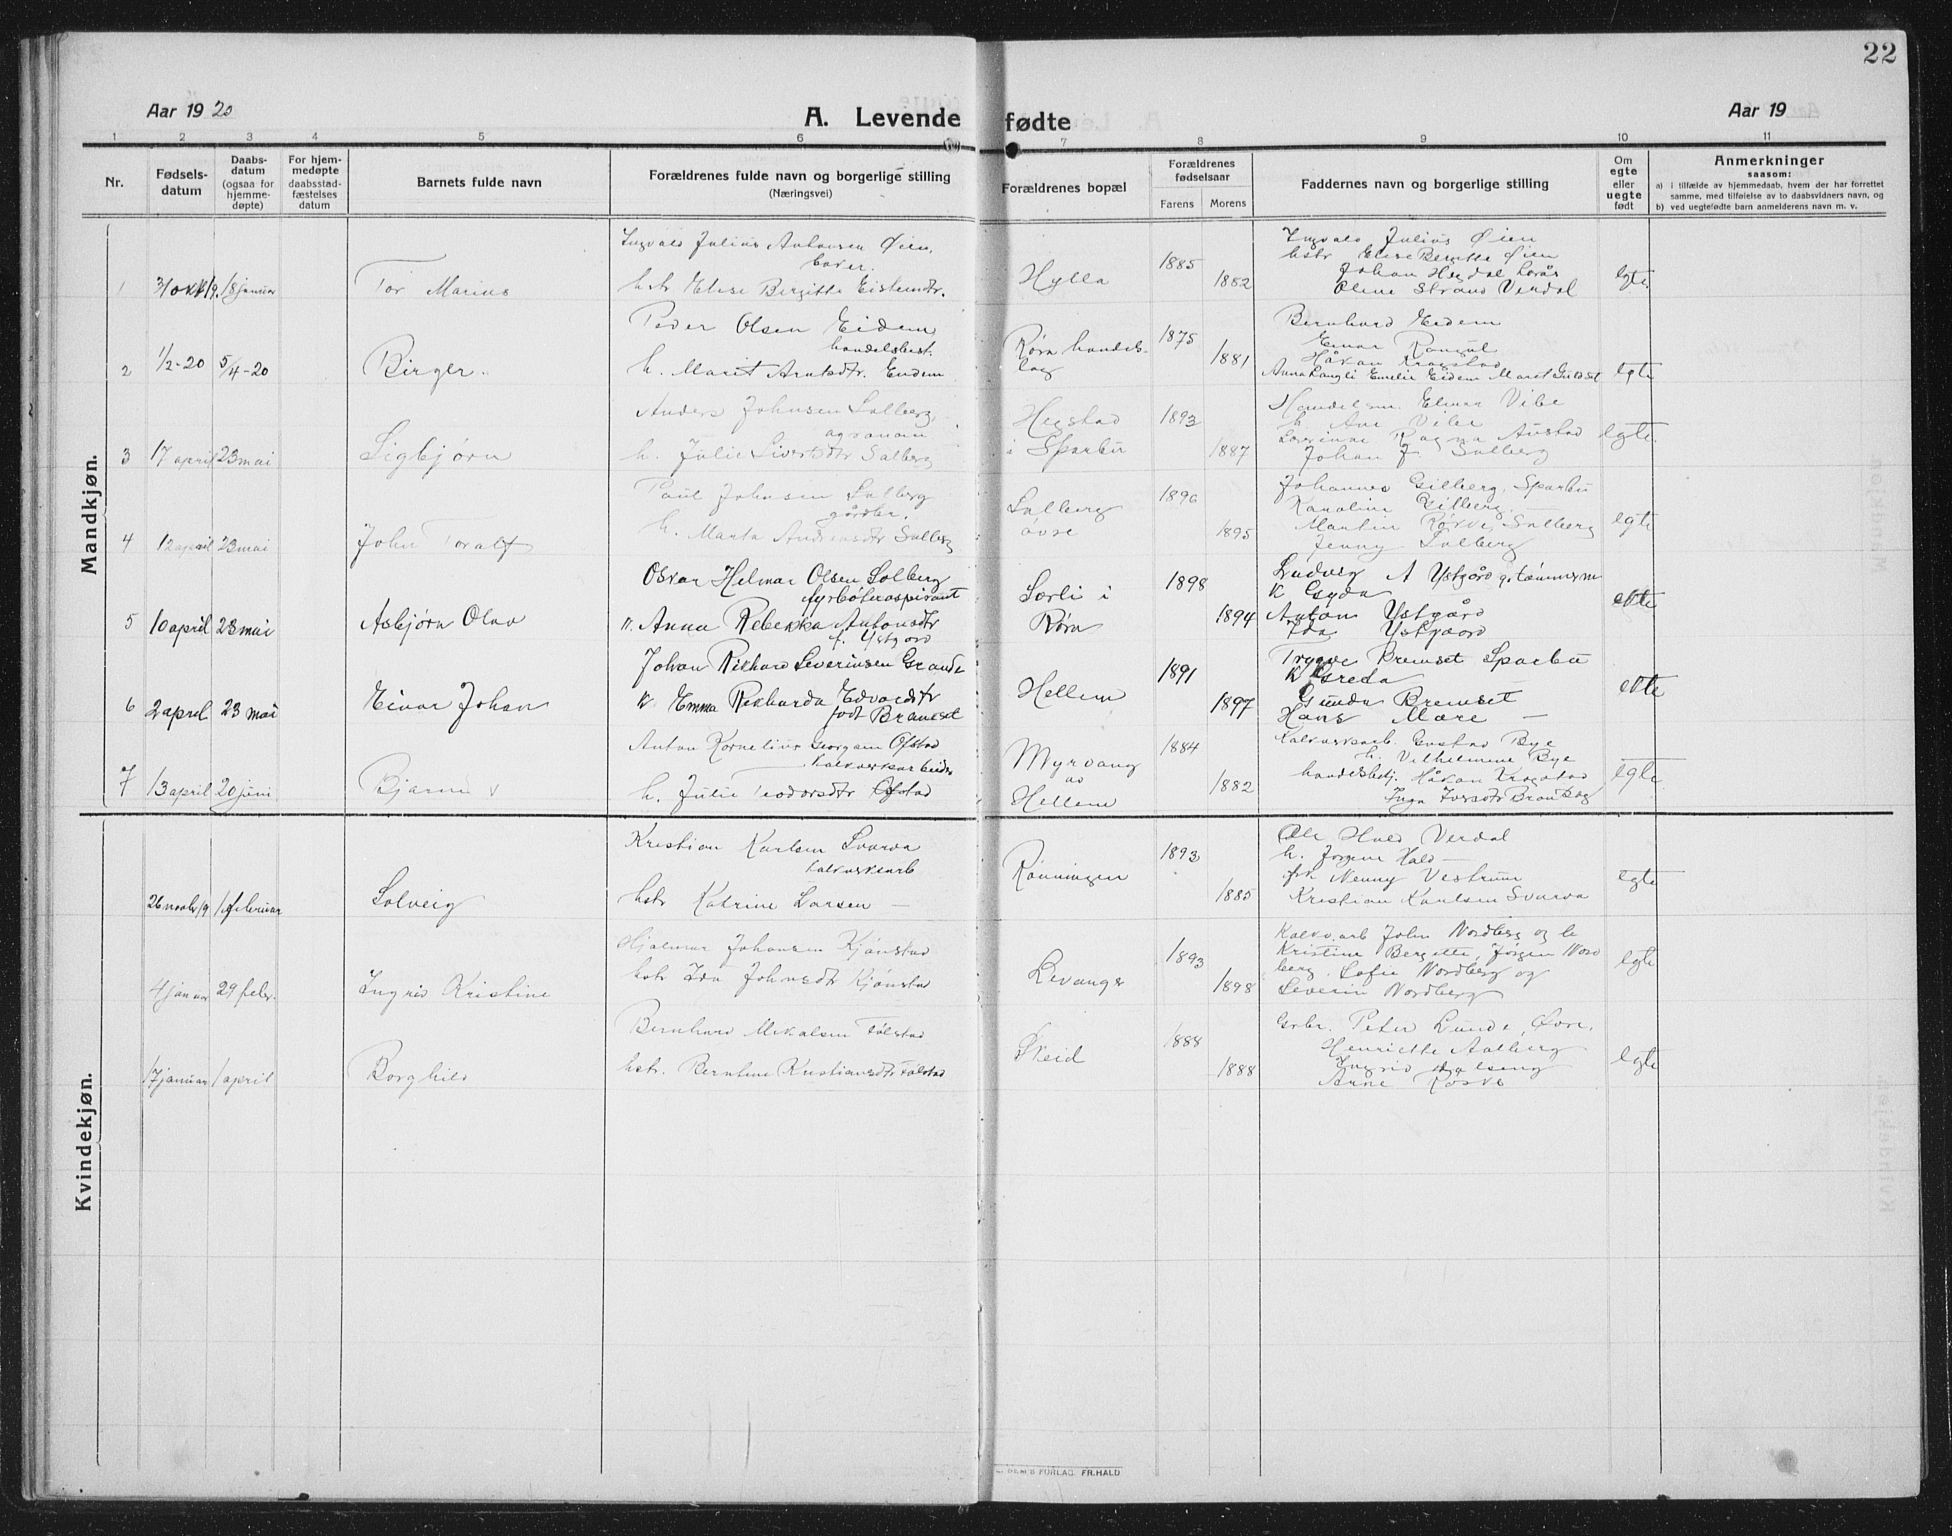 22
Aar 1920
A. Levende fødte
Aar 19
1 2 3 4 5 6 7 8 9 10 11
Nr.
Fødsels-
datum
Daabs-
datum
(ogsaa for
hjemme-
døpte)
For hjem-
medøpte
daabsstad-
fæstelses
datum
Barnets fulde navn
Forældrenes fulde navn og borgerlige stilling
(Næringsvei)
Forældrenes bopæl
Forældrenes
fødselsaar
Farens Morens
Faddernes navn og borgerlige stilling
Om
egte
eller
uegte
født
Anmerkninger
saasom:
a) i tilfælde av hjemmedaab, hvem der har forrettet
samme, med tilføielse av to daabsvidners navn, og
b) ved uegtefødte barn anmelderens navn m. v.
Mandkjøn.
1 31 okt 19. 18 januar
Tor Marius
Ingvald Julius Antonsen Øien.
hstr Elise Birgitte Eistensdtr.
Hylla
1885
1882
Ingvald Julius Øien
hstr Elise Bergitte Øien
Johan Hegdal
Oline Strand Verdal
egte.
2 1/2-20 5/4-20
Birger.
Peder Olsen Eidem
handelsbest.
h. Marit Arntsdtr. Eidem
Røra handels-
lag
1875
1881
Bernhard Eidem
Einar
Håkan Kragstad
Anna Langli Emelie Eidem Marit
egte
3 17 april 23 mai
Sigbjørn
Anders Johnsen Salberg,
agronom
h. Julie Sivertsdtr Salberg
Hegstad
i Sparbu
1893
1887
Handelsm. Elmar Vibe
h. Vibe
Ragna Austad
Johan J. Salberg
egte.
4 12 april 23 mai
John Toralf
Paul Johnsen Salberg
gårdbr.
h. Marta Andreasdtr Salberg
Salberg
øvre
1896
1895
Johannes Gilberg, Sparbu
Karoline Gilberg
Martin Røkve, Salberg
Jenny Salberg
egte
5 10 april 23 mai
Asbjørn Olav
Oskar Helmar Olsen Solberg
fyrbøteraspirant
k. Anna Rebekka Antonsdtr
f. Ystgård
Sørli i
Røra
1898
1894
Ludvig A Ystgård g. tømmerm
k Gyda
Anton Ystgård
Ida Ystgaard
ekte
6 2 april 23 mai
Einar Johan
Johan Rikhard Severinsen Grande
k. Emma Rikharda Edvardsdtr
født Bremset
Hellem
1891
1897
Trygve Bremset Sparbu
k Greda
Gunda Bremset
Hans Mære —
ekte
7 13 april 20 juni
Bjarne
Anton Kornelius Georgsen Ofstad
kalkverksarbeider
h. Julie Teodorsdtr Ofstad
Myrvang
av
Hellem
1884
1882
Kalkverksarb. Gustav Bye
h. Vilhelmine Bye
handelsbetj. Håkan Kragstad
Inga Iversdtr
egte
Kvindekjøn.
26 novbr 19 1 februar
Solveig
Kristian Karlsen Svarva
kalkverksarb
hstr Katrine Larsen —
Rønningen
1893
1885
Ole Hald Verdal
h. Jørgine Hald —
frk Nenny Vestrum
Kristian Karlsen Svarva
egte
4 januar 29 febr.
Ingrid Kristine
Hjalmar Johansen Kjønstad
hstr Ida Johnsdtr Kjønstad
Levanger
1893
1898
Kalkv. arb John Nordberg og h
Kristine Bergitte, Jørgen Nord
berg. Sofie Nordberg og
Severin Nordberg
egte
17 januar 1 april
Borghild
Bernhard Mikalsen Følstad
hstr. Berntine Kristiansdtr Følstad
Skeid
1888
1888
Grbr. Peter Lunde, Øvre.
Henriette Aalberg
Ingrid
Arne Røskе
egte
FORLAG. FR. HALD